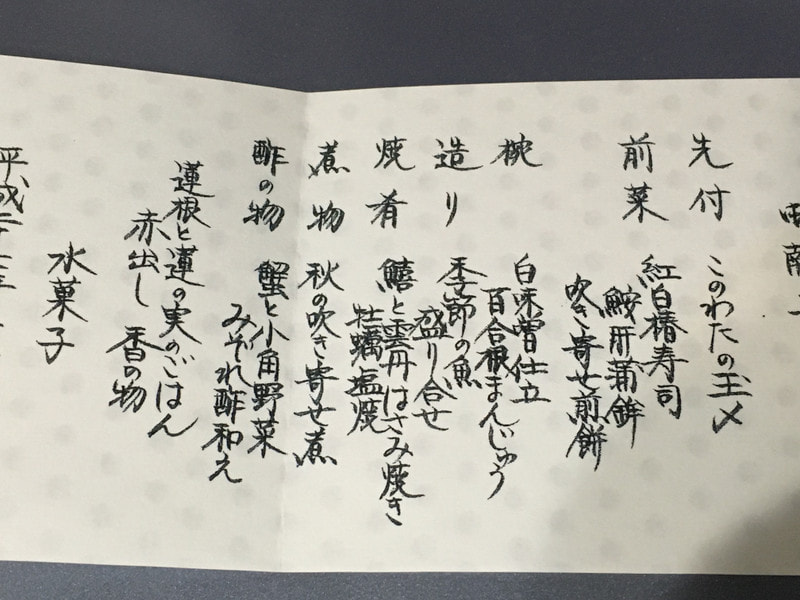 先付 このわたの玉〆
前菜 紅白椿寿司
鮟肝蒲鉾
吹き寄せ煎餅
椀 白味噌仕立
百合根まんじゅう
造り 季節の魚
盛り合せ
焼肴 鱚と雲丹はさみ焼き
牡蠣塩焼
煮物 秋の吹き寄せ煮
酢の物 蟹と小角野菜
みぞれ酢和え
蓮根と蓮の実のごはん
赤出し 香の物
水菓子
平成二十